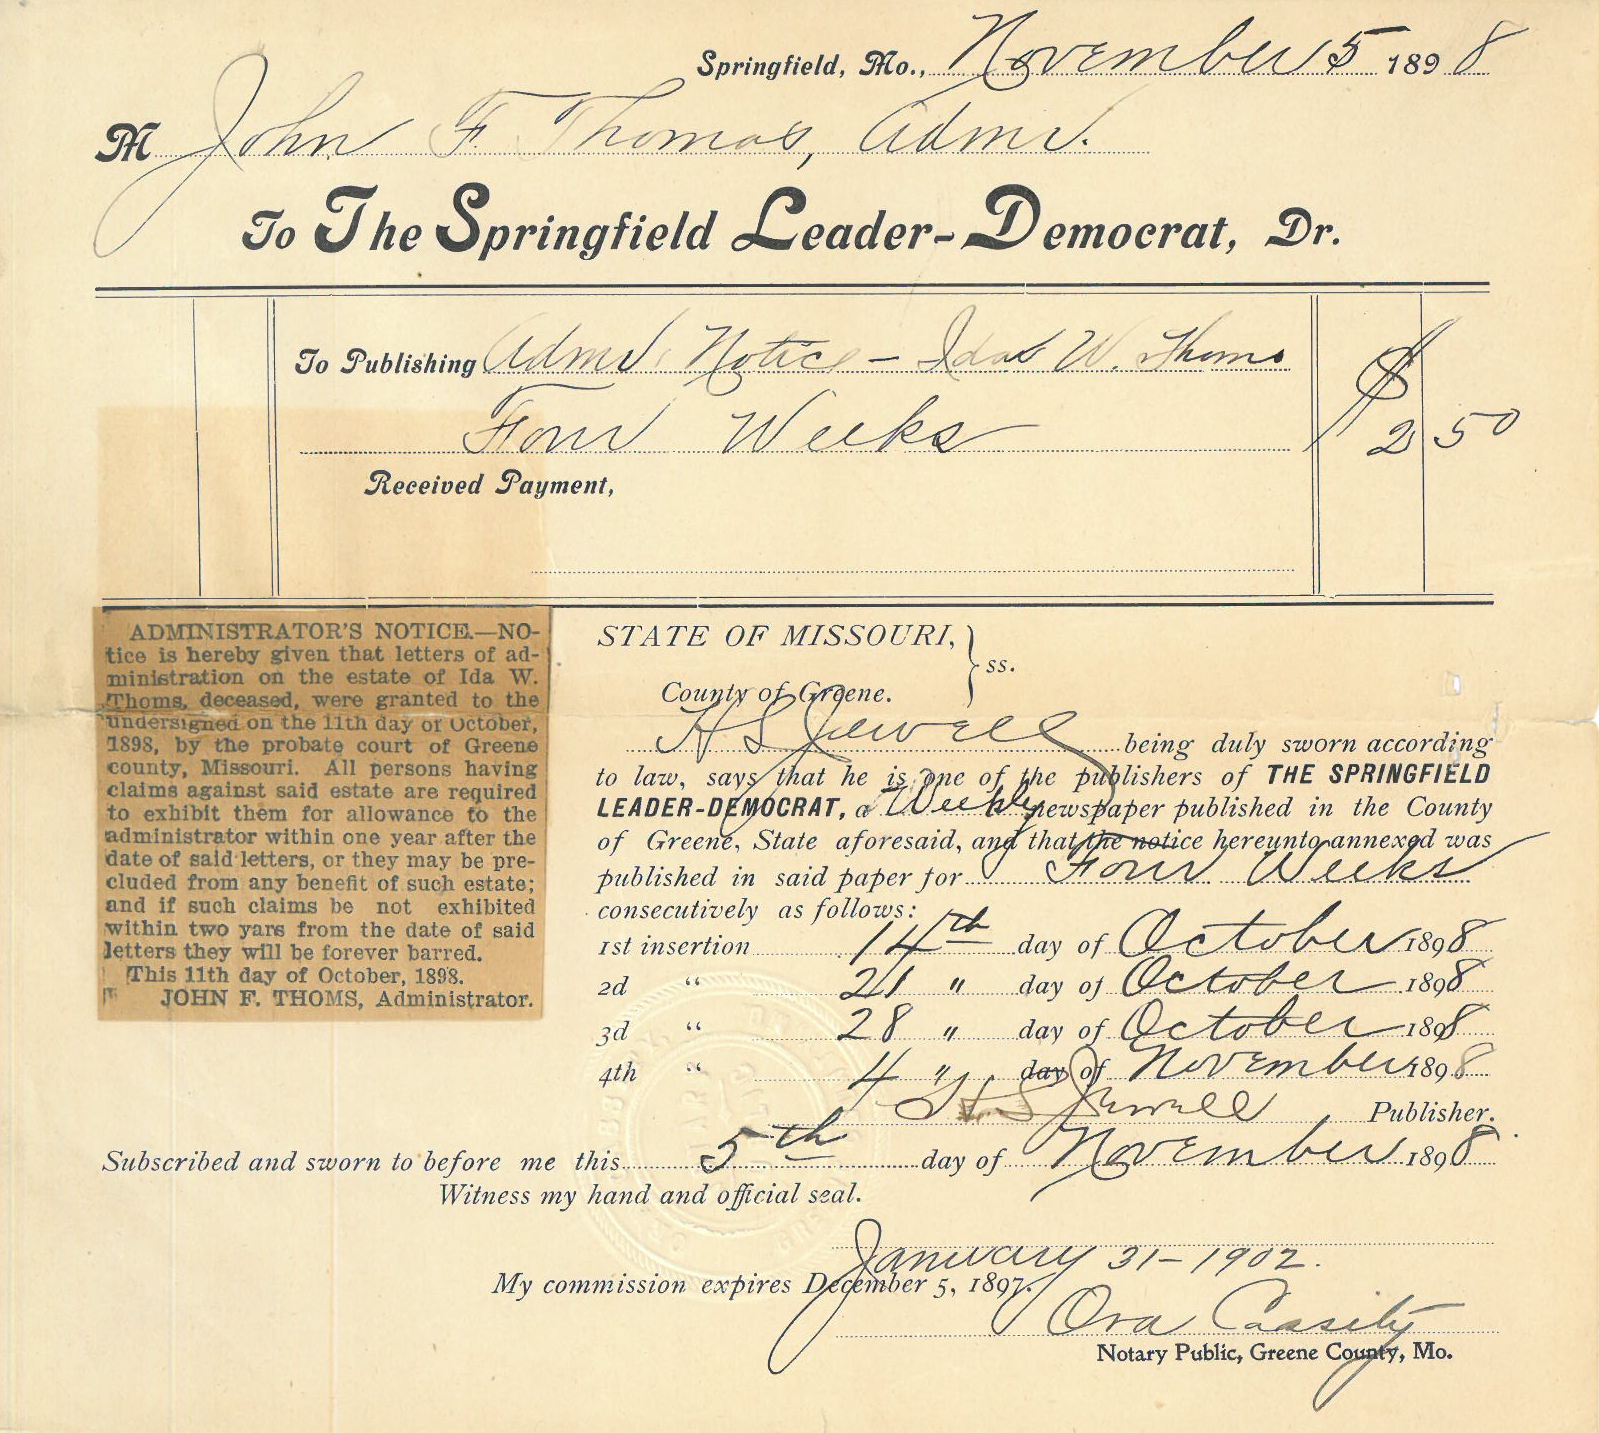 Springfield, Mo., November 5 1898
M John F. Thomas, Admr.
To The Springfield Leader-Democrat, Dr.
To Publishing Admr. Notice - Idas W. Thoms
Four Weeks
$ 2 50
Received Payment,
ADMINISTRATOR'S NOTICE.—NO-
tice is hereby given that letters of ad-
ministration on the estate of Ida W.
Thoms, deceased, were granted to the
undersigned on the 11th day of October,
1898, by the probate court of Greene
county, Missouri. All persons having
claims against said estate are required
to exhibit them for allowance to the
administrator within one year after the
date of said letters, or they may be pre-
cluded from any benefit of such estate;
and if such claims be not exhibited
within two yars from the date of said
letters they will be forever barred.
This 11th day of October, 1898.
JOHN F. THOMS, Administrator.
STATE OF MISSOURI, } ss.
County of Greene.
H S Jewell being duly sworn according
to law, says that he is one of the publishers of THE SPRINGFIELD
LEADER-DEMOCRAT, a Weekly newspaper published in the County
of Greene, State aforesaid, and that the notice hereunto annexed was
published in said paper for Four Weeks
consecutively as follows:
1st insertion 14th day of October 1898
2d " 21 " day of October 1898
3d " 28 " day of October 1898
4th " 4 " day of November 1898
H S Jewell Publisher.
Subscribed and sworn to before me this 5th day of November 1898
Witness my hand and official seal.
January 31-1902.
My commission expires December 5, 1897.
Ora Cassity
Notary Public, Greene County, Mo.